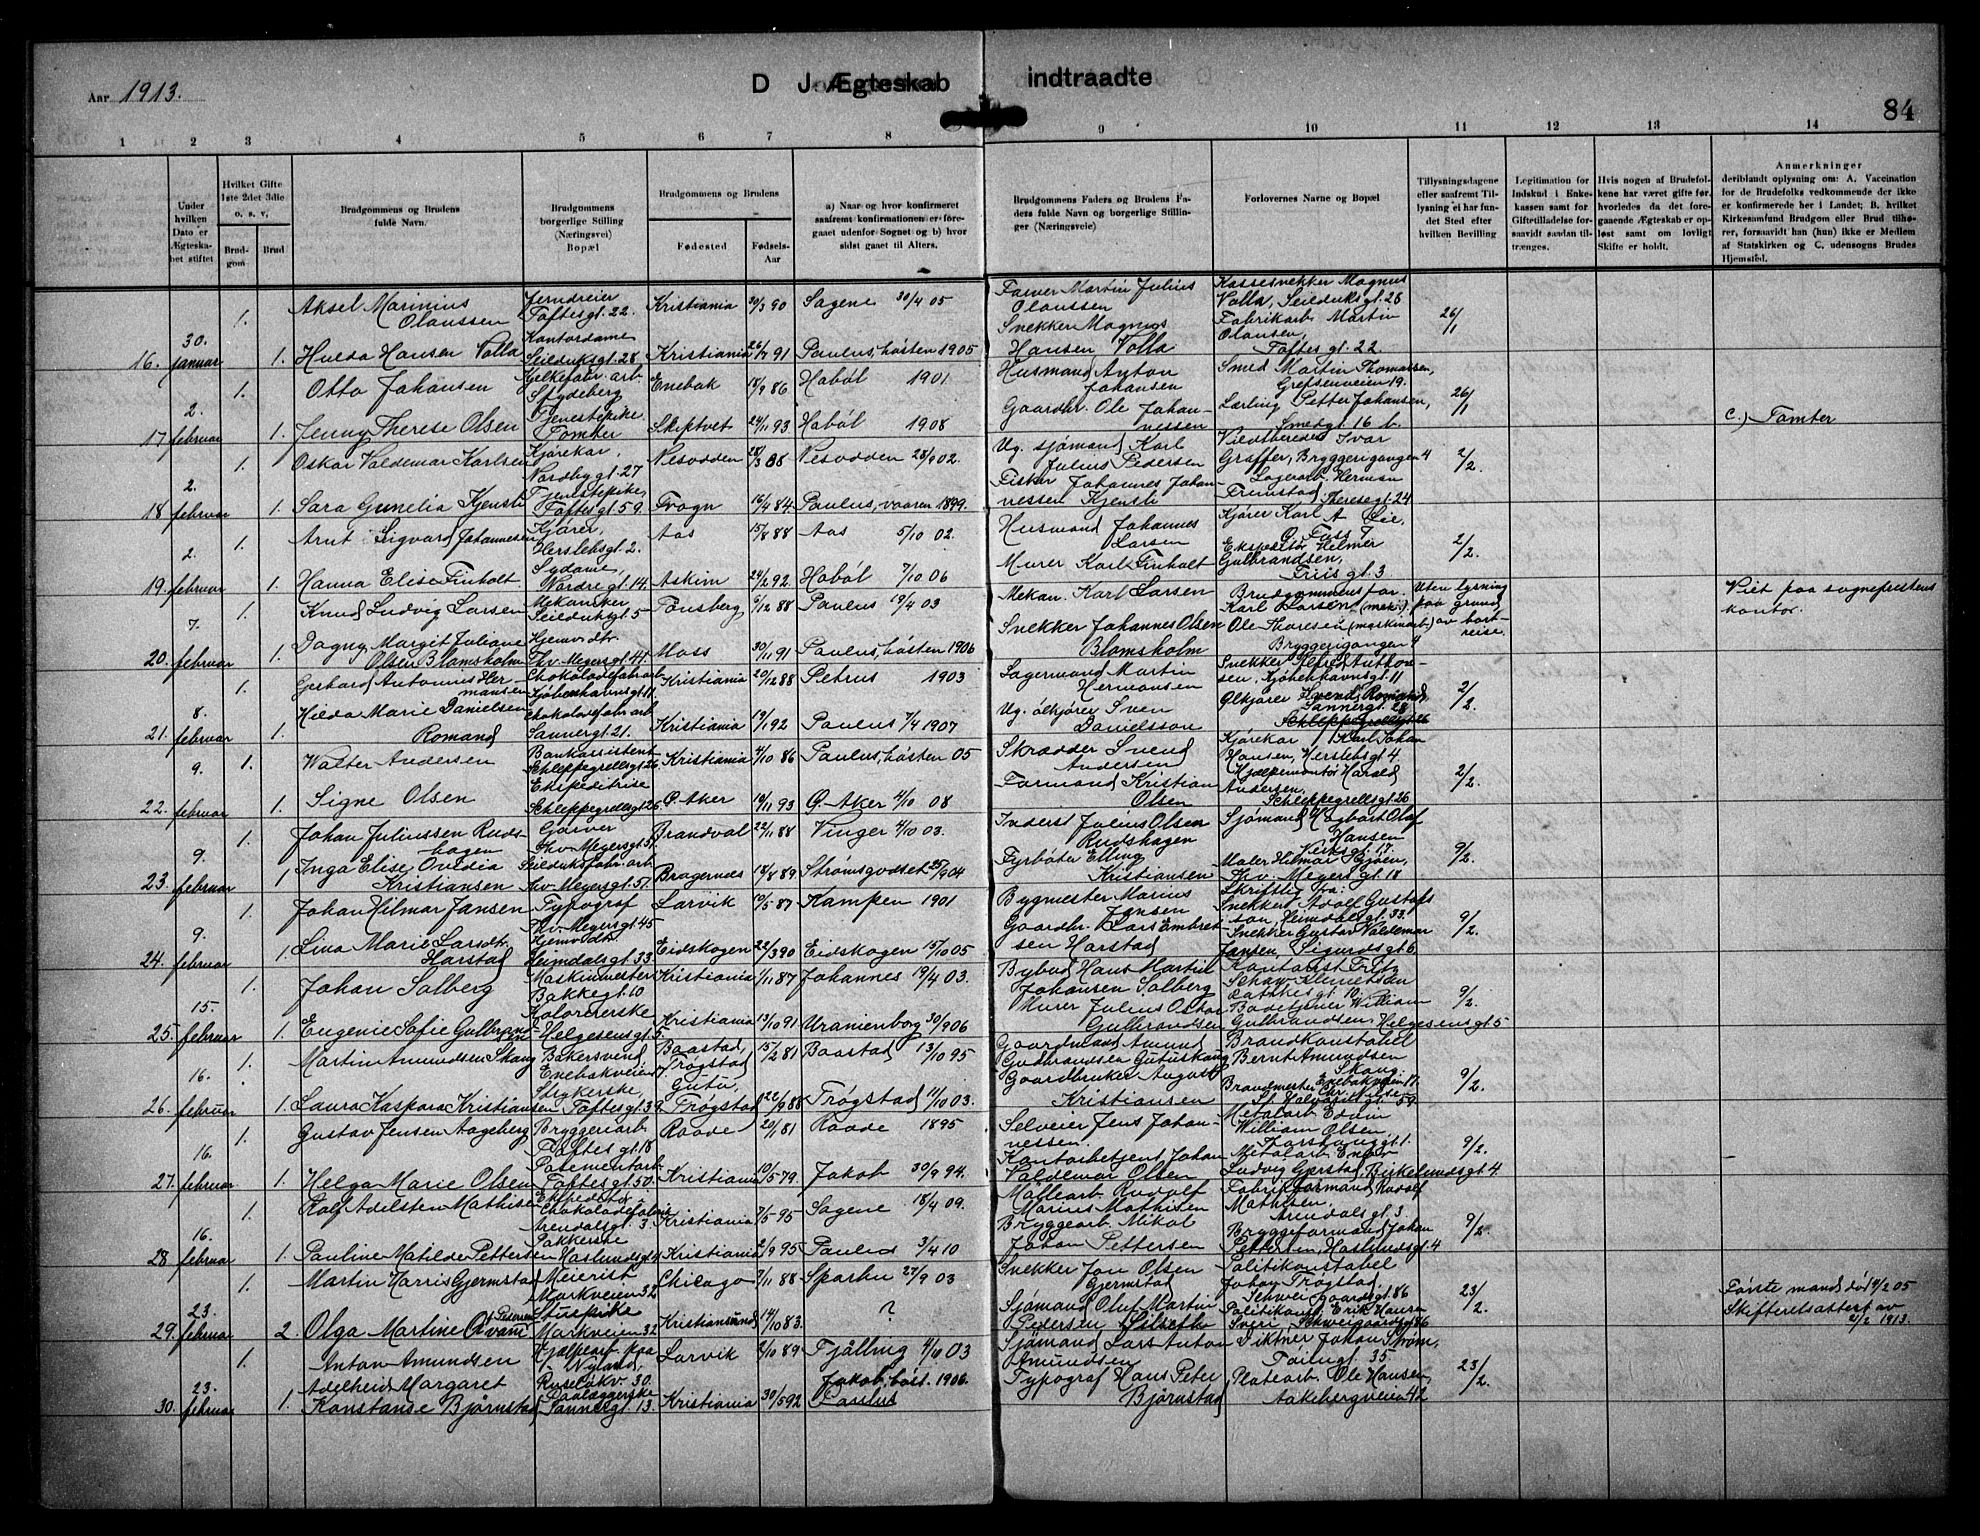 Aar 1913.
D J Ægteskab indtraadte
84
1 2 3 4 5 6 7 8 9 10 11 12 13 14
Under hvilken Dato er Ægteskabet stiftet
Hvilket Gifte 1ste 2det 3die o. s. v.
Brudgom
Brud
Brudgommens og Brudens fulde Navn.
Brudgommens borgerlige Stilling (Næringsvei) Bopæl
Brudgommens og Brudens
Fødested
Fødsels-Aar
a) Naar og hvor konfirmeret saafremt konfirmationen er foregaaet udenfor Sognet og b) hvor sidst gaaet til Alters.
Brudgommens Faders og Brudens Faders fulde Navn og borgerlige Stillinger (Næringsveie)
Forlovernes Navne og Bopæl
Tillysningsdagene eller saafremt Tillysning ei har fundet Sted efter hvilken Bevilling
Legitimation for Indskud i Enkekassen samt for Giftetilladelse forsaavidt saadan tiltrænges.
Hvis nogen af Brudefolkene har været gifte før, hvorledes da det foregaaende Ægteskab er opløst samt om lovligt Skifte er holdt.
Anmerkninger
deriblandt oplysning om: A. Vaccination for de Brudefolks vedkommende der ikke er konfirmerede her i Landet; B. hvilket Kirkesamfund Brudgom eller Brud tilhører, forsaavidt han (hun) ikke er Medlem af Statskirken og C, udensogns Brudes Hjemsted.
16. 30. januar
1. Aksel Marinius Olaussen Jerndreier Toftesgt. 22. Kristiania 30/3 90 Sagene 30/4 05 Farver Martin Julius Olaussen Kassesnekker Magnus Volla, Seilduksgt. 26 26/1
1. Hulda Hansen Volla Kontordame Seilduksgt. 28. Kristiania 26/7 91 Paulus, høsten 1905 Snekker Magnus Hansen Volla Fabrikarb. Martin Olausen, Toftes gt. 22
17. 2. februar
1. Otto Johansen Spydeberg Enebak 18/9 86 Habøl 1901 Husmand Anton Johansen Smed Martin Thomassen, Grefsenveien 19. 26/1
1. Jenny Therese Olsen Tjenestepike Tomter Skiptvet 24/11 93 Habøl 1908 Gaardbr. Ole Johannessen Lærling Petter Johansen, Smedgt. 16 b. C.) Tomter
18. 2. februar
1. Oskar Valdemar Karlsen Kjørekar, Nordbygt. 27 Nesodden 28/3 88 Nesodden 28/9 02. Ug. sjømand Karl Julius Pedersen Ivar Graffer, Bryggerigangen 4 2/2.
1. Sara Gunelia Kjensli Tjenestepike Toftesgt. 59. Frogn 16/4 84. Paulus, vaaren 1899. Fisker Johannes Johannessen Kjensli Lagerarb. Herman Frimstad, Theresegt. 24
19. 2. februar
1. Arnt Sigvard Johannesen Kjører, Herslebsgt. 2. Aas 15/8 88 Aas 5/10 02. Husmand Johannes Larsen Kjører Karl A Lie, 2/2.
1. Hanna Elise Finholt Sydame, Nordre gt. 14. Askim 24/2 92. Habøl 7/10 06 Murer Karl Finholt Ekspeditør Helmer Gulbrandsen, Friis gt. 3
20. 7. februar
1. Knud Ludvig Larsen Mekaniker Seilduksgt. 5 Tønsberg 6/12 88 Paulus 19/4 03 Mekan. Karl Larsen Brudgommens far Karl Larsen (mek.), Uten lysning paa grund av bortreise. Viet paa sogneprestens kontor.
1. Dagny Margit Juliane Olsen Blomsholm Hjemv. dtr. Thv. Meyersgt. 41. Moss 30/11 91 Paulus, høsten 1906 Snekker Johannes Olsen Blomsholm Ole Thoresen (maskinarb.) Bryggerigangen 4
21. 8. februar
1. Gerhard Antonnes Hermansen Chokoladefabr.arb. Kjøbenhavnsgt. 11. Kristiania 20/12 88 Petrus 1903 Lagermand Martin Hermansen Snekker Alfred Anthonsen, Kjøbenhavnsgt. 11 2/2.
1. Hilda Marie Danielsen Romand Chokoladefabr. arb. Sannergt. 21. Kristiania 19/1 92 Paulus 7/4 1907 Ug. ølkjører Sven Danielsson Ølkjører Svend Romand, Sannergt. 28
22. 9. februar
1. Walter Andersen Bankassistent Schleppegrellsgt. 26. Kristiania 4/10 86 Paulus, høsten 05 Skrædder Svend Andersen Kjørekar Karl Johan Hansen, Herslebsgt. 4 2/2.
1. Signe Olsen Ekspeditrise Schleppegrellsgt. 26. Ø. Aker 19/11 93 Ø. Aker 4/10 08 Formand Kristian Olsen Hjælpemontør Harald Andersen, Schleppegrellsgt. 26
23. 9. februar
1. Johan Juliussen Rudshagen Garver Thv. Meyersgt. 51. Brandval 22/11 88 Vinger 4/10 03. Inderst Julius Olsen Rudshagen Sjømand Hagbart Olaf Hansen 9/2.
1. Inga Elise Ovidia Kristiansen Seilduksfabr. arb. Thv. Meyersgt. 51. Bragernes 18/8 89 Strømsgodset 25/9 04 Fyrbøter Elling Kristiansen Maler Hilmar Gjøen, Thv. Meyers gt. 18
24. 9. februar
1. Johan Hilmar Jansen Typograf Thv. Meyersgt. 45 Larvik 19/5 87 Kampen 1901 Bygmester Marius Jansen Skriftlig fra: Snekker Adolf Gustafsson, Heimdalsgt. 33. 9/2.
1. Lina Marie Larsdtr. Harstad Hjemv. dtr. Heimdalsgt. 33 Eidskogen 22/3 90 Eidskogen 15/10 05 Gaardbr. Lars Embretsen Harstad Snekker Gustav Valdemar Jansen, Sigurdsgt. 6
25. 15. februar
1. Johan Solberg Maskinmester Bakkegt. 10 Kristiania 1/11 87 Johannes 19/4 03. Bybud Hans Martin Johansen Solberg Kontorist Fritz 9/2.
1. Eugenie Sofie Gulbrandsen Kolorererske Helgesensgt. 5 Kristiania 13/10 91 Uranienborg 30/9 06 Murer Julius Oskar Gulbrandsen William Gulbrandsen, Helgesensgt 5
26. 16. februar
1. Martin Amundsen Skang Bakersvend Enebakveien Baastad, Trøgstad 15/2 81 Baastad 13/10 95 Gaardmand Amund Gudbrandsen Brandkonstabel Bernt Amundsen Skang. 9/2.
1. Laura Kaspara Kristiansen Stepperske, Toftesgt. 39 Trøgstad 22/9 88 Trøgstad 11/10 03. Gaardbruker August Kristiansen Brandmester
27. 16. februar
1. Gustav Jensen Aageberg Bryggeriarb. Toftes gt. 18 Raade 20/1 81 Raade 1895 Selveier Jens Johannessen. Metalarb. Edvin William Olsen, 9/2.
1. Helga Marie Olsen Posementarb. Toftesgt. 50. Kristiania 10/5 79. Jakob 30/9 94. Kontorbetjent Johan Valdemar Olsen Metalarb. Einar Ludvig Gjerstad, Birkelundsgt. 4
28. 16. februar
1. Rolf Adelsten Mathisen Ekspeditør Chokoladefabrik, Arendalsgt. 3 Kristiania 7/5 95 Sagene 18/4 09. Møllearb. Rudolf Marius Mathisen Fabrikformand Rudolf Mathisen, Arendalsgt. 3 9/2.
1. Pauline Matilde Pettersen Pakkerske Haslundsgt. 4 Kristiania 2/9 95 Paulus 3/4 10 Bryggearb. Mikal Johan Pettersen Bryggeformand Johan Pettersen, Haslundsgt. 4
29. 23. februar
1. Martin Harris Gjermstad Meierist Markveien 32 Chicago 7/11 88 Sparbu 27/9 03 Snekker Jon Olsen Gjermstad Politikonstabel Johan Trøgstad, Schweigaardsgt 86 23/2. Første mand død 14/2 05 Skifteretsattest av 21/2 1913.
2. Olga Martine Pedersen Kvam Stuepike Markveien 32 Kristiansund 14/10 83. ? Sjømand Oluf Martin Pedersen Silsetho Politikonst. Erik Hansen Sveri Schweigaardsgt 86
30. 23. februar
1. Anton Amundsen Hjælpearb. paa Nyland, Ruseløkv. 30. Larvik 2/10 89 Fjälling 4/10 03 Sjømand Lars Anton Amundsen Johan Strøm, 35. 23/2.
1. Adelheid Margaret Konstanse Bjørnstad Paalæggerske Sannergt. 13. Kristiania 30/5 92 Jakob, høst. 1906. Paulus Typograf Hans Peter Bjørnstad Platearb. Ole Hansen, Aakebergveien 42